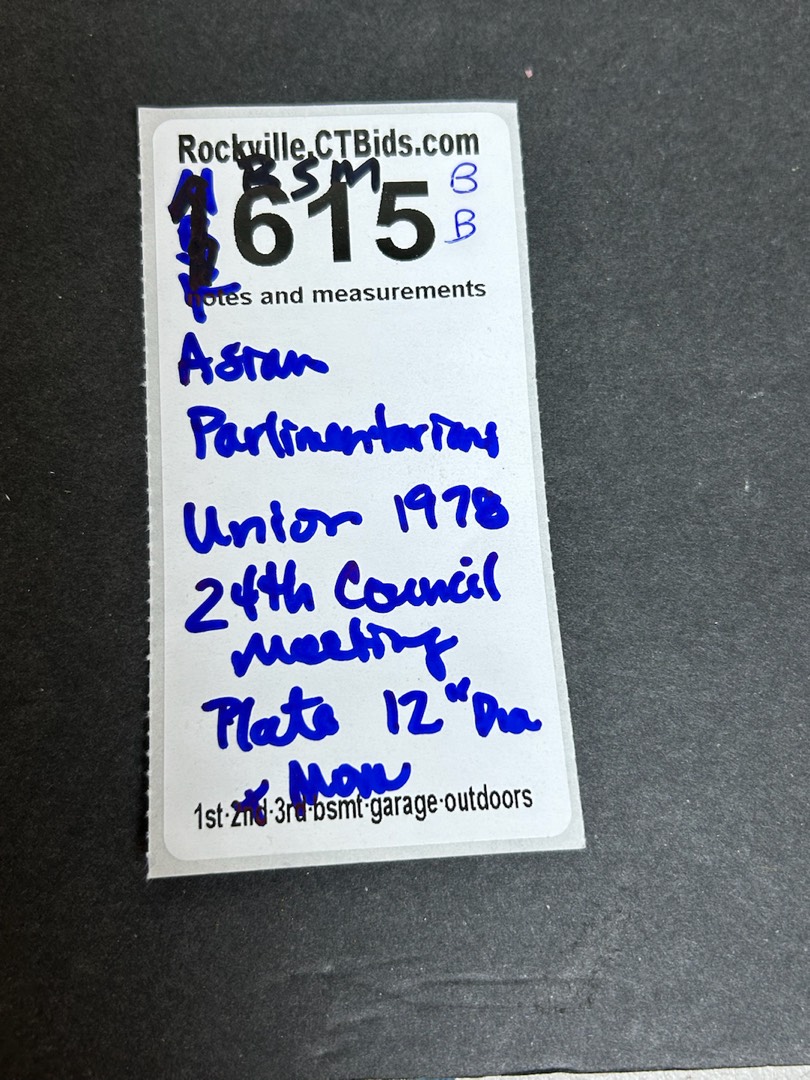 Rockville.CTBids.com
BSM
1615 B
B
notes and measurements
Asian
Parlimentarians
Union 1978
24th Council
Meeting
Plate 12" Dia
+ More
1st·2nd·3rd·bsmt·garage·outdoors